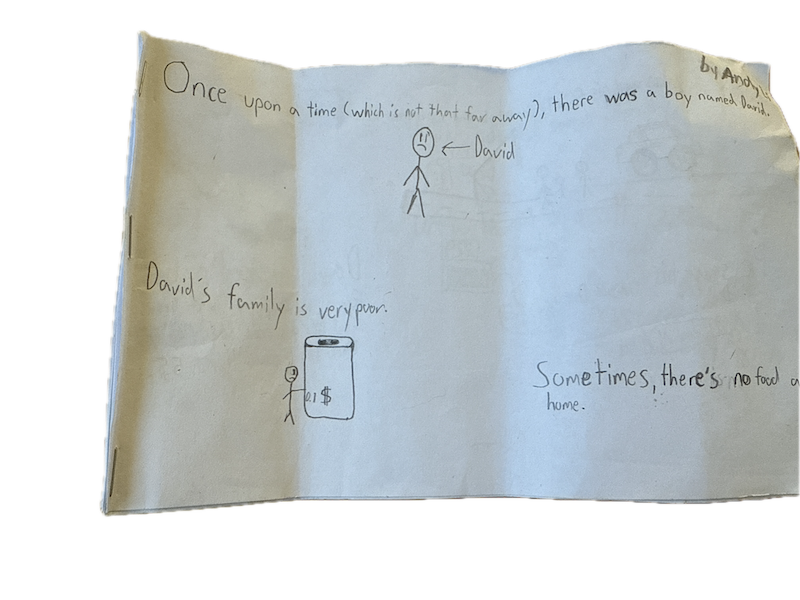 by Andy
Once upon a time (which is not that far away), there was a boy named David.
← David
David's family is very poor.
0.1 $
Sometimes, there's no food a
home.